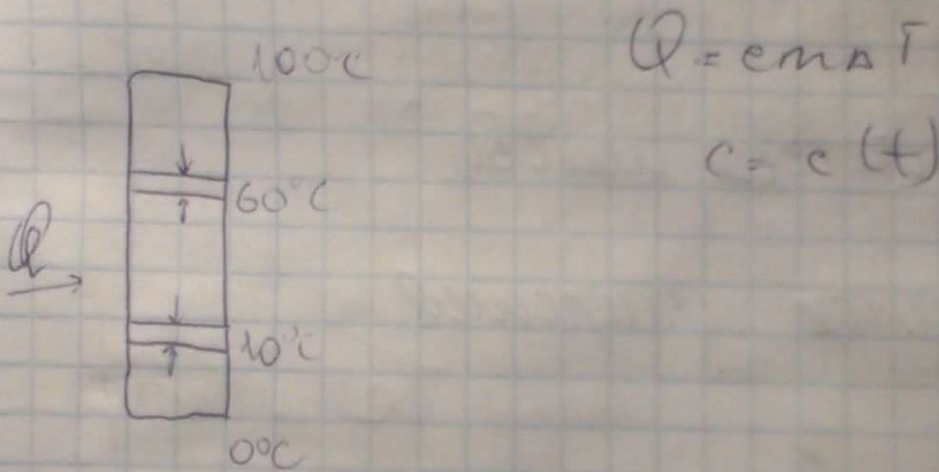 100°C
Q = cm∆T
c = c (t)
60°C
Q
10°C
0°C